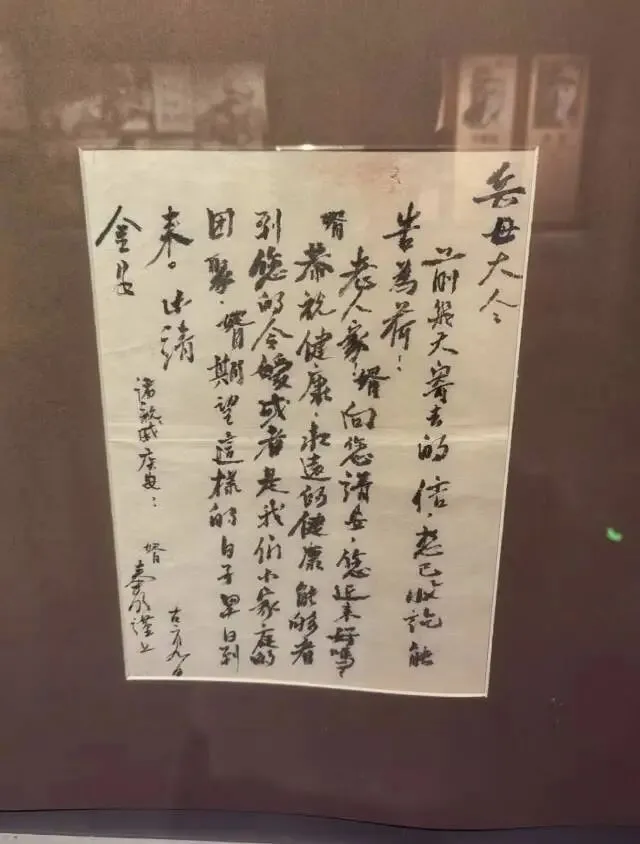 岳母大人
前幾天寄去的信，想已收訖 能
告為荷：
老人家，婿向您請安，您近来好嗎
婿
恭祝健康，永遠的健康 能够看
到您的令嬡或者是我们小家庭的
团聚，婿期望這樣的日子早日到
来。 請
金安
諸親戚
婿 秦 謹上
月九日